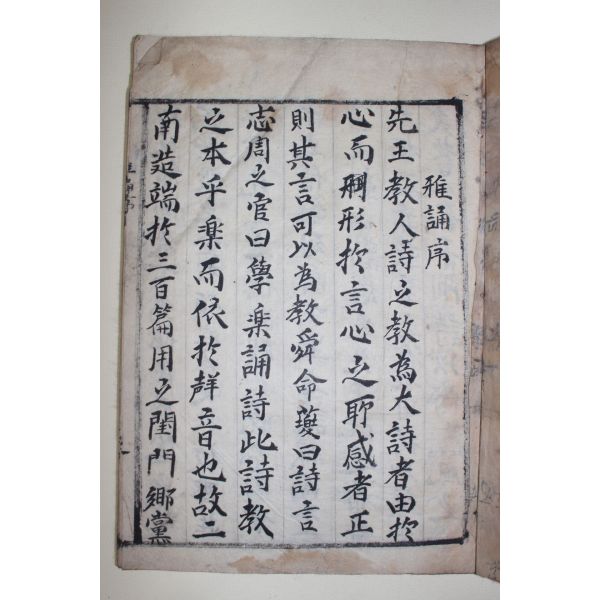 雅誦序
先王教人詩之教為大詩者由於
心而形於言心之所感者正
則其言可以為教舜命夔曰詩言
志周之官曰學樂誦詩此詩教
之本乎楽而依於聲音也故二
南造端於三百篇用之閨門鄉黨